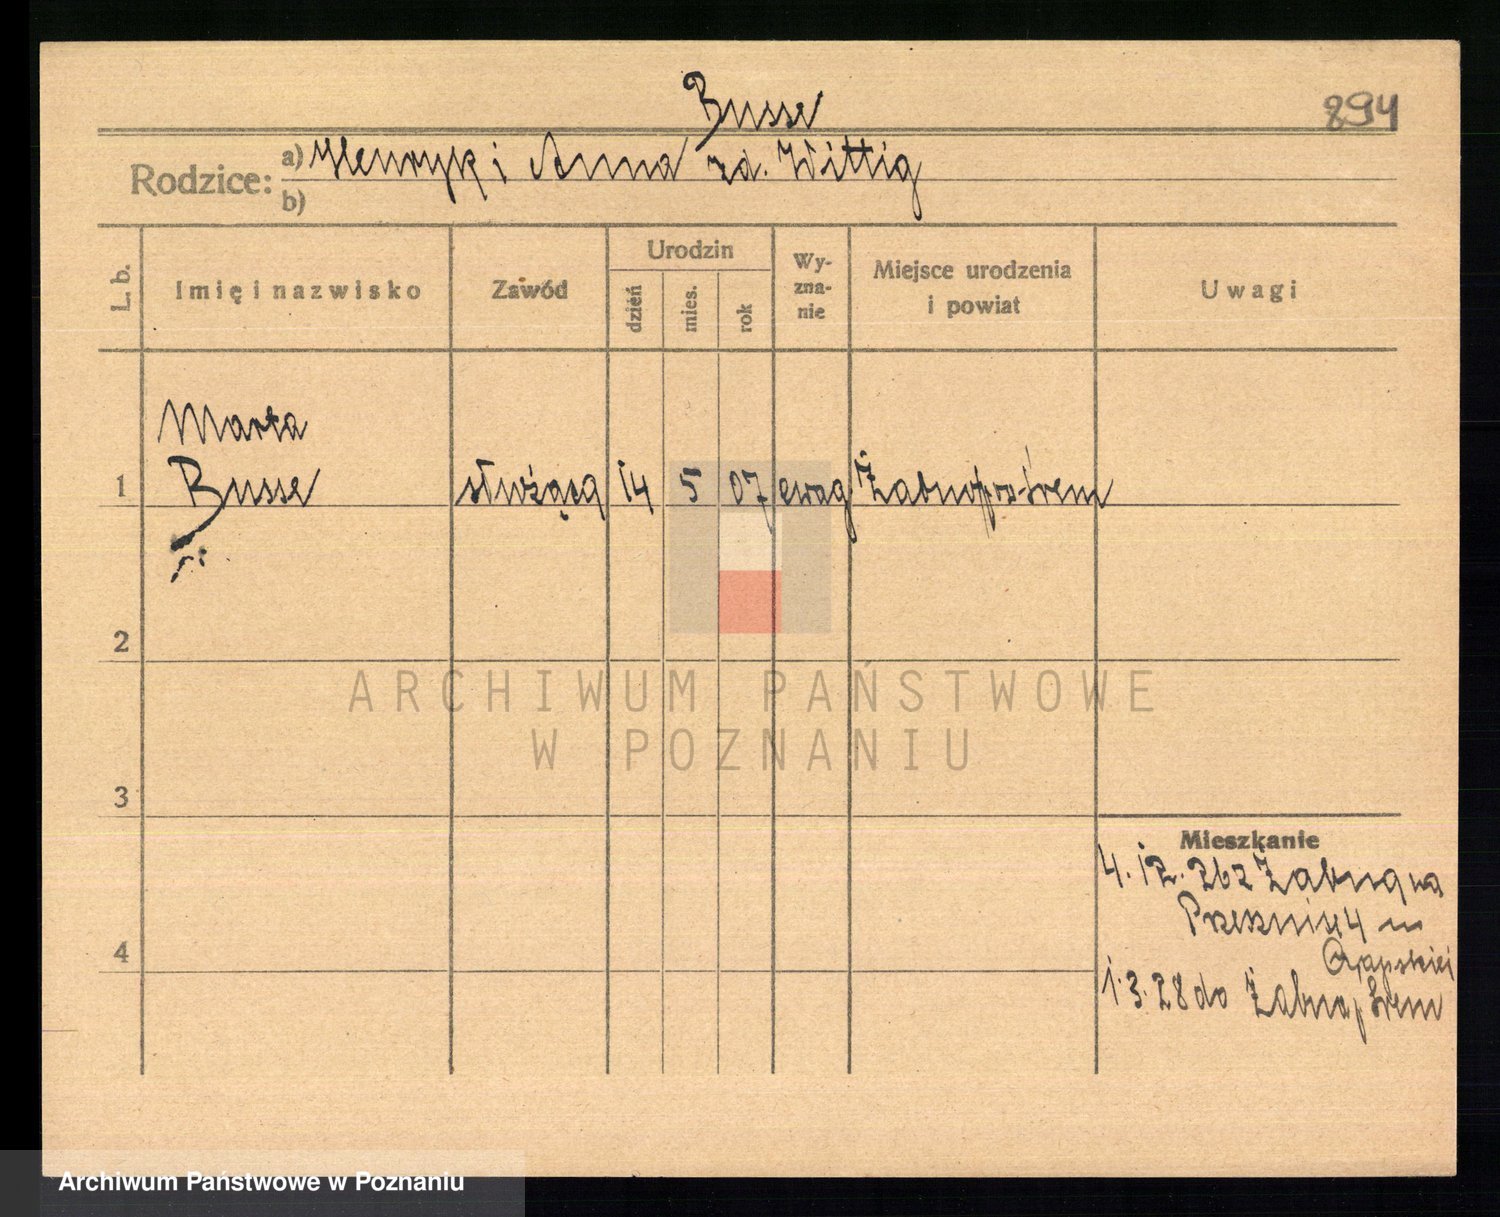 Busse
894
Rodzice: a) Henryk i Anna zd. Wittig
b)
L. b. Imię i nazwisko Zawód Urodzin dzień mies. rok Wyznanie Miejsce urodzenia i powiat Uwagi
Marta
1 Busse służącą 14 5 07 ewag Żabno p. Śrem
2
ARCHIWUM PAŃSTWOWE
W POZNANIU
3
Mieszkanie
4. 12. 26 z Żabna na
4
1. 3. 28 do Żabna p Śrem
Archiwum Państwowe w Poznaniu